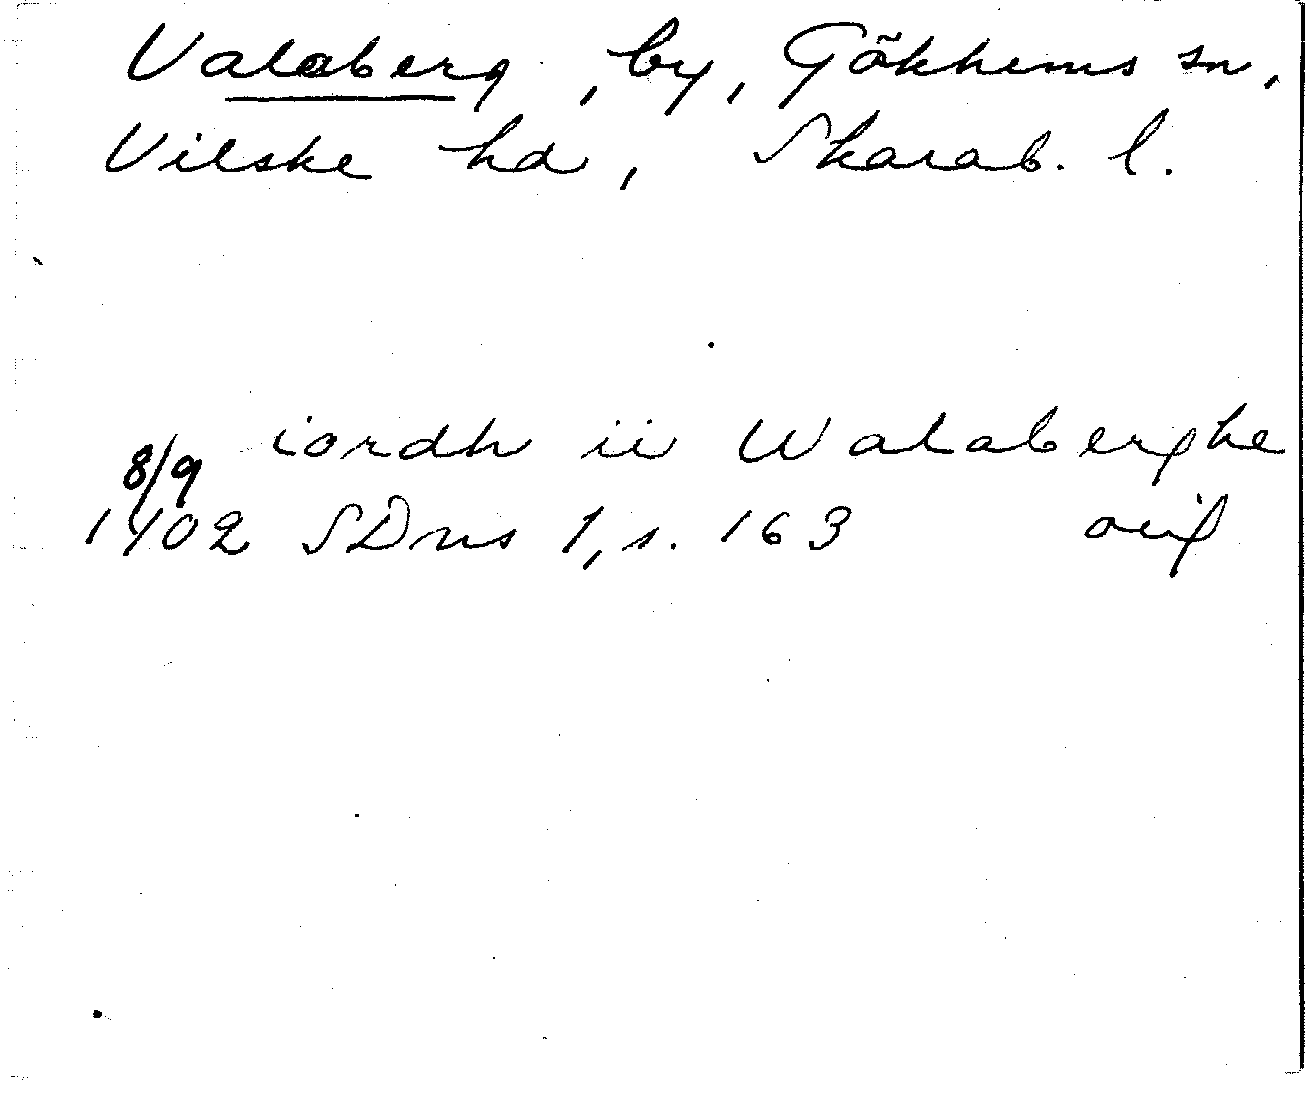 Valaberg, by, Gökhems sn,
Vilske hd, Skarab. l.
iordh ii Walaberghe
8/9
1402 SDns 1, s. 163 orig